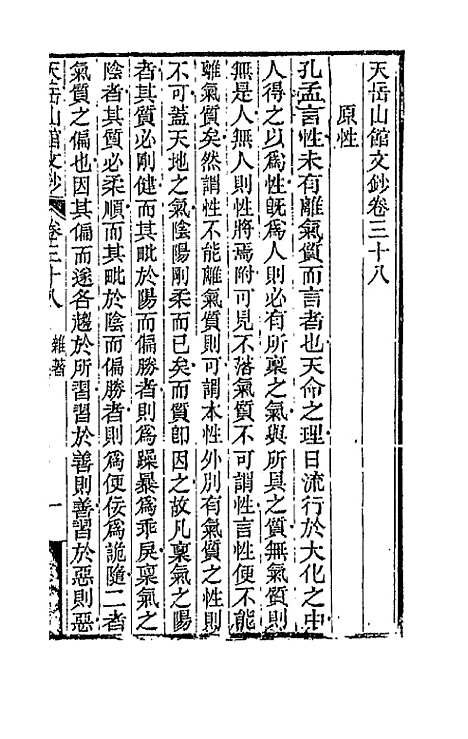 天岳山館文鈔卷三十八
原性
孔孟言性未有離氣質而言者也天命之理日流行於大化之中
人得之以爲性旣爲人則必有所稟之氣與所具之質無氣質則
無是人無人則性將焉附可見不落氣質不可謂性言性便不能
離氣質矣然謂性不能離氣質則可謂本性外別有氣質之性則
不可蓋天地之氣陰陽剛柔而已矣而質卽因之故凡稟氣之陽
者其質必剛健而其毗於陽而偏勝者則爲躁暴爲乖戾稟氣之
陰者其質必柔順而其毗於陰而偏勝者則爲便佞爲詭隨二者
氣質之偏也因其偏而遂各趨於所習習於善則善習於惡則惡
天岳山館文鈔 卷三十八 雜著 一